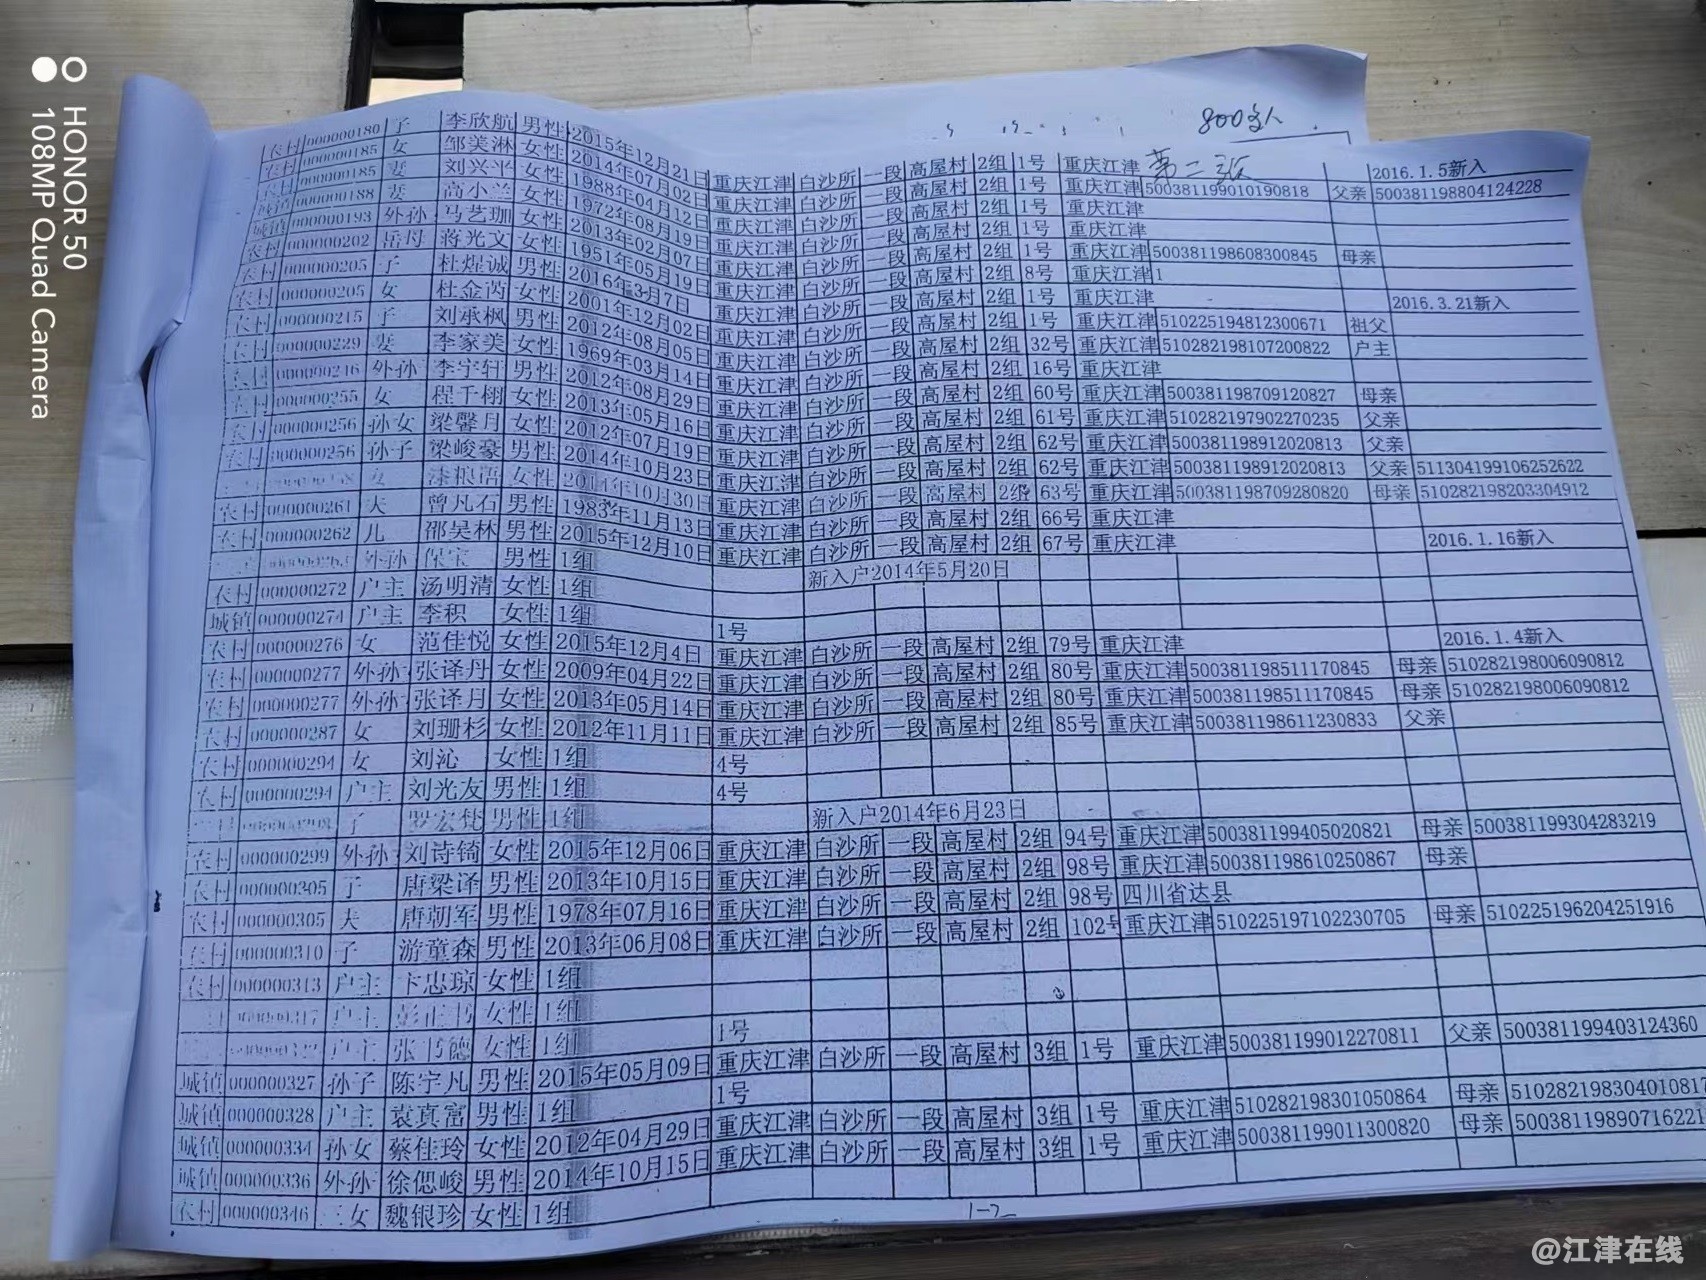 HONOR 50
108MP Quad Camera
800多人
第二张
农村 000000180 子 李欣航 男性 2015年12月21日 重庆江津 白沙所 一段 高屋村 2组 1号 重庆江津 2016.1.5新入
农村 000000185 女 邹美淋 女性 2014年07月02日 重庆江津 白沙所 一段 高屋村 2组 1号 重庆江津 500381199010190818 父亲 500381198804124228
农村 000000185 妻 刘兴平 女性 1988年04月12日 重庆江津 白沙所 一段 高屋村 2组 1号 重庆江津
城镇 000000188 妻 高小兰 女性 1972年08月19日 重庆江津 白沙所 一段 高屋村 2组 1号 重庆江津
农村 000000193 外孙 马艺珈 女性 2013年02月07日 重庆江津 白沙所 一段 高屋村 2组 1号 重庆江津 500381198608300845 母亲
农村 000000202 岳母 蒋光文 女性 1951年05月19日 重庆江津 白沙所 一段 高屋村 2组 8号 重庆江津1
农村 000000205 子 杜煋诚 男性 2016年3月7日 重庆江津 白沙所 一段 高屋村 2组 1号 重庆江津 2016.3.21新入
农村 000000205 女 杜金芮 女性 2001年12月02日 重庆江津 白沙所 一段 高屋村 2组 1号 重庆江津 510225194812300671 祖父
农村 000000215 子 刘承枫 男性 2012年08月05日 重庆江津 白沙所 一段 高屋村 2组 32号 重庆江津 510282198107200822 户主
农村 000000229 妻 李家美 女性 1969年03月14日 重庆江津 白沙所 一段 高屋村 2组 16号 重庆江津
农村 000000246 外孙 李宇轩 男性 2012年08月29日 重庆江津 白沙所 一段 高屋村 2组 60号 重庆江津 500381198709120827 母亲
农村 000000255 女 程千栩 女性 2013年05月16日 重庆江津 白沙所 一段 高屋村 2组 61号 重庆江津 510282197902270235 父亲
农村 000000256 孙女 梁馨月 女性 2012年07月19日 重庆江津 白沙所 一段 高屋村 2组 62号 重庆江津 500381198912020813 父亲
农村 000000256 孙子 梁峻豪 男性 2014年10月23日 重庆江津 白沙所 一段 高屋村 2组 62号 重庆江津 500381198912020813 父亲 511304199106252622
女 女性 2014年10月30日 重庆江津 白沙所 一段 高屋村 2组 63号 重庆江津 500381198709280820 母亲 510282198203304912
农村 000000261 夫 曾凡石 男性 1983年11月13日 重庆江津 白沙所 一段 高屋村 2组 66号 重庆江津
农村 000000262 儿 邵昊林 男性 2015年12月10日 重庆江津 白沙所 一段 高屋村 2组 67号 重庆江津 2016.1.16新入
外孙 保宝 男性 1组 新入户2014年5月20日
农村 000000272 户主 汤明清 女性 1组
城镇 000000274 户主 李积 女性 1组 1号
农村 000000276 女 范佳悦 女性 2015年12月4日 重庆江津 白沙所 一段 高屋村 2组 79号 重庆江津 2016.1.4新入
农村 000000277 外孙 张译丹 女性 2009年04月22日 重庆江津 白沙所 一段 高屋村 2组 80号 重庆江津 500381198511170845 母亲 510282198006090812
农村 000000277 外孙 张译月 女性 2013年05月14日 重庆江津 白沙所 一段 高屋村 2组 80号 重庆江津 500381198511170845 母亲 510282198006090812
农村 000000287 女 刘珊杉 女性 2012年11月11日 重庆江津 白沙所 一段 高屋村 2组 85号 重庆江津 500381198611230833 父亲
农村 000000294 女 刘沁 女性 1组 4号
农村 000000294 户主 刘光友 男性 1组 4号
子 罗宏梵 男性 1组 新入户2014年6月23日
农村 000000299 外孙 刘诗锜 女性 2015年12月06日 重庆江津 白沙所 一段 高屋村 2组 94号 重庆江津 500381199405020821 母亲 500381199304283219
农村 000000305 子 唐梁译 男性 2013年10月15日 重庆江津 白沙所 一段 高屋村 2组 98号 重庆江津 500381198610250867 母亲
农村 000000305 夫 唐朝军 男性 1978年07月16日 重庆江津 白沙所 一段 高屋村 2组 98号 四川省达县
农村 000000310 子 游童森 男性 2013年06月08日 重庆江津 白沙所 一段 高屋村 2组 102号 重庆江津 510225197102230705 母亲 510225196204251916
农村 000000313 户主 卞思琼 女性 1组
000000317 户主 女性 1组
户主 张书德 女性 1组 1号
城镇 000000327 孙子 陈宇凡 男性 2015年05月09日 重庆江津 白沙所 一段 高屋村 3组 1号 重庆江津 500381199012270811 父亲 500381199403124360
城镇 000000328 户主 袁真富 男性 1组 1号
城镇 000000334 孙女 蔡佳玲 女性 2012年04月29日 重庆江津 白沙所 一段 高屋村 3组 1号 重庆江津 510282198301050864 母亲 510282198304010817
城镇 000000336 外孙 徐偲峻 男性 2014年10月15日 重庆江津 白沙所 一段 高屋村 3组 1号 重庆江津 500381199011300820 母亲 50038119890716221
农村 000000346 三女 魏银珍 女性 1组
1-2
@江津在线